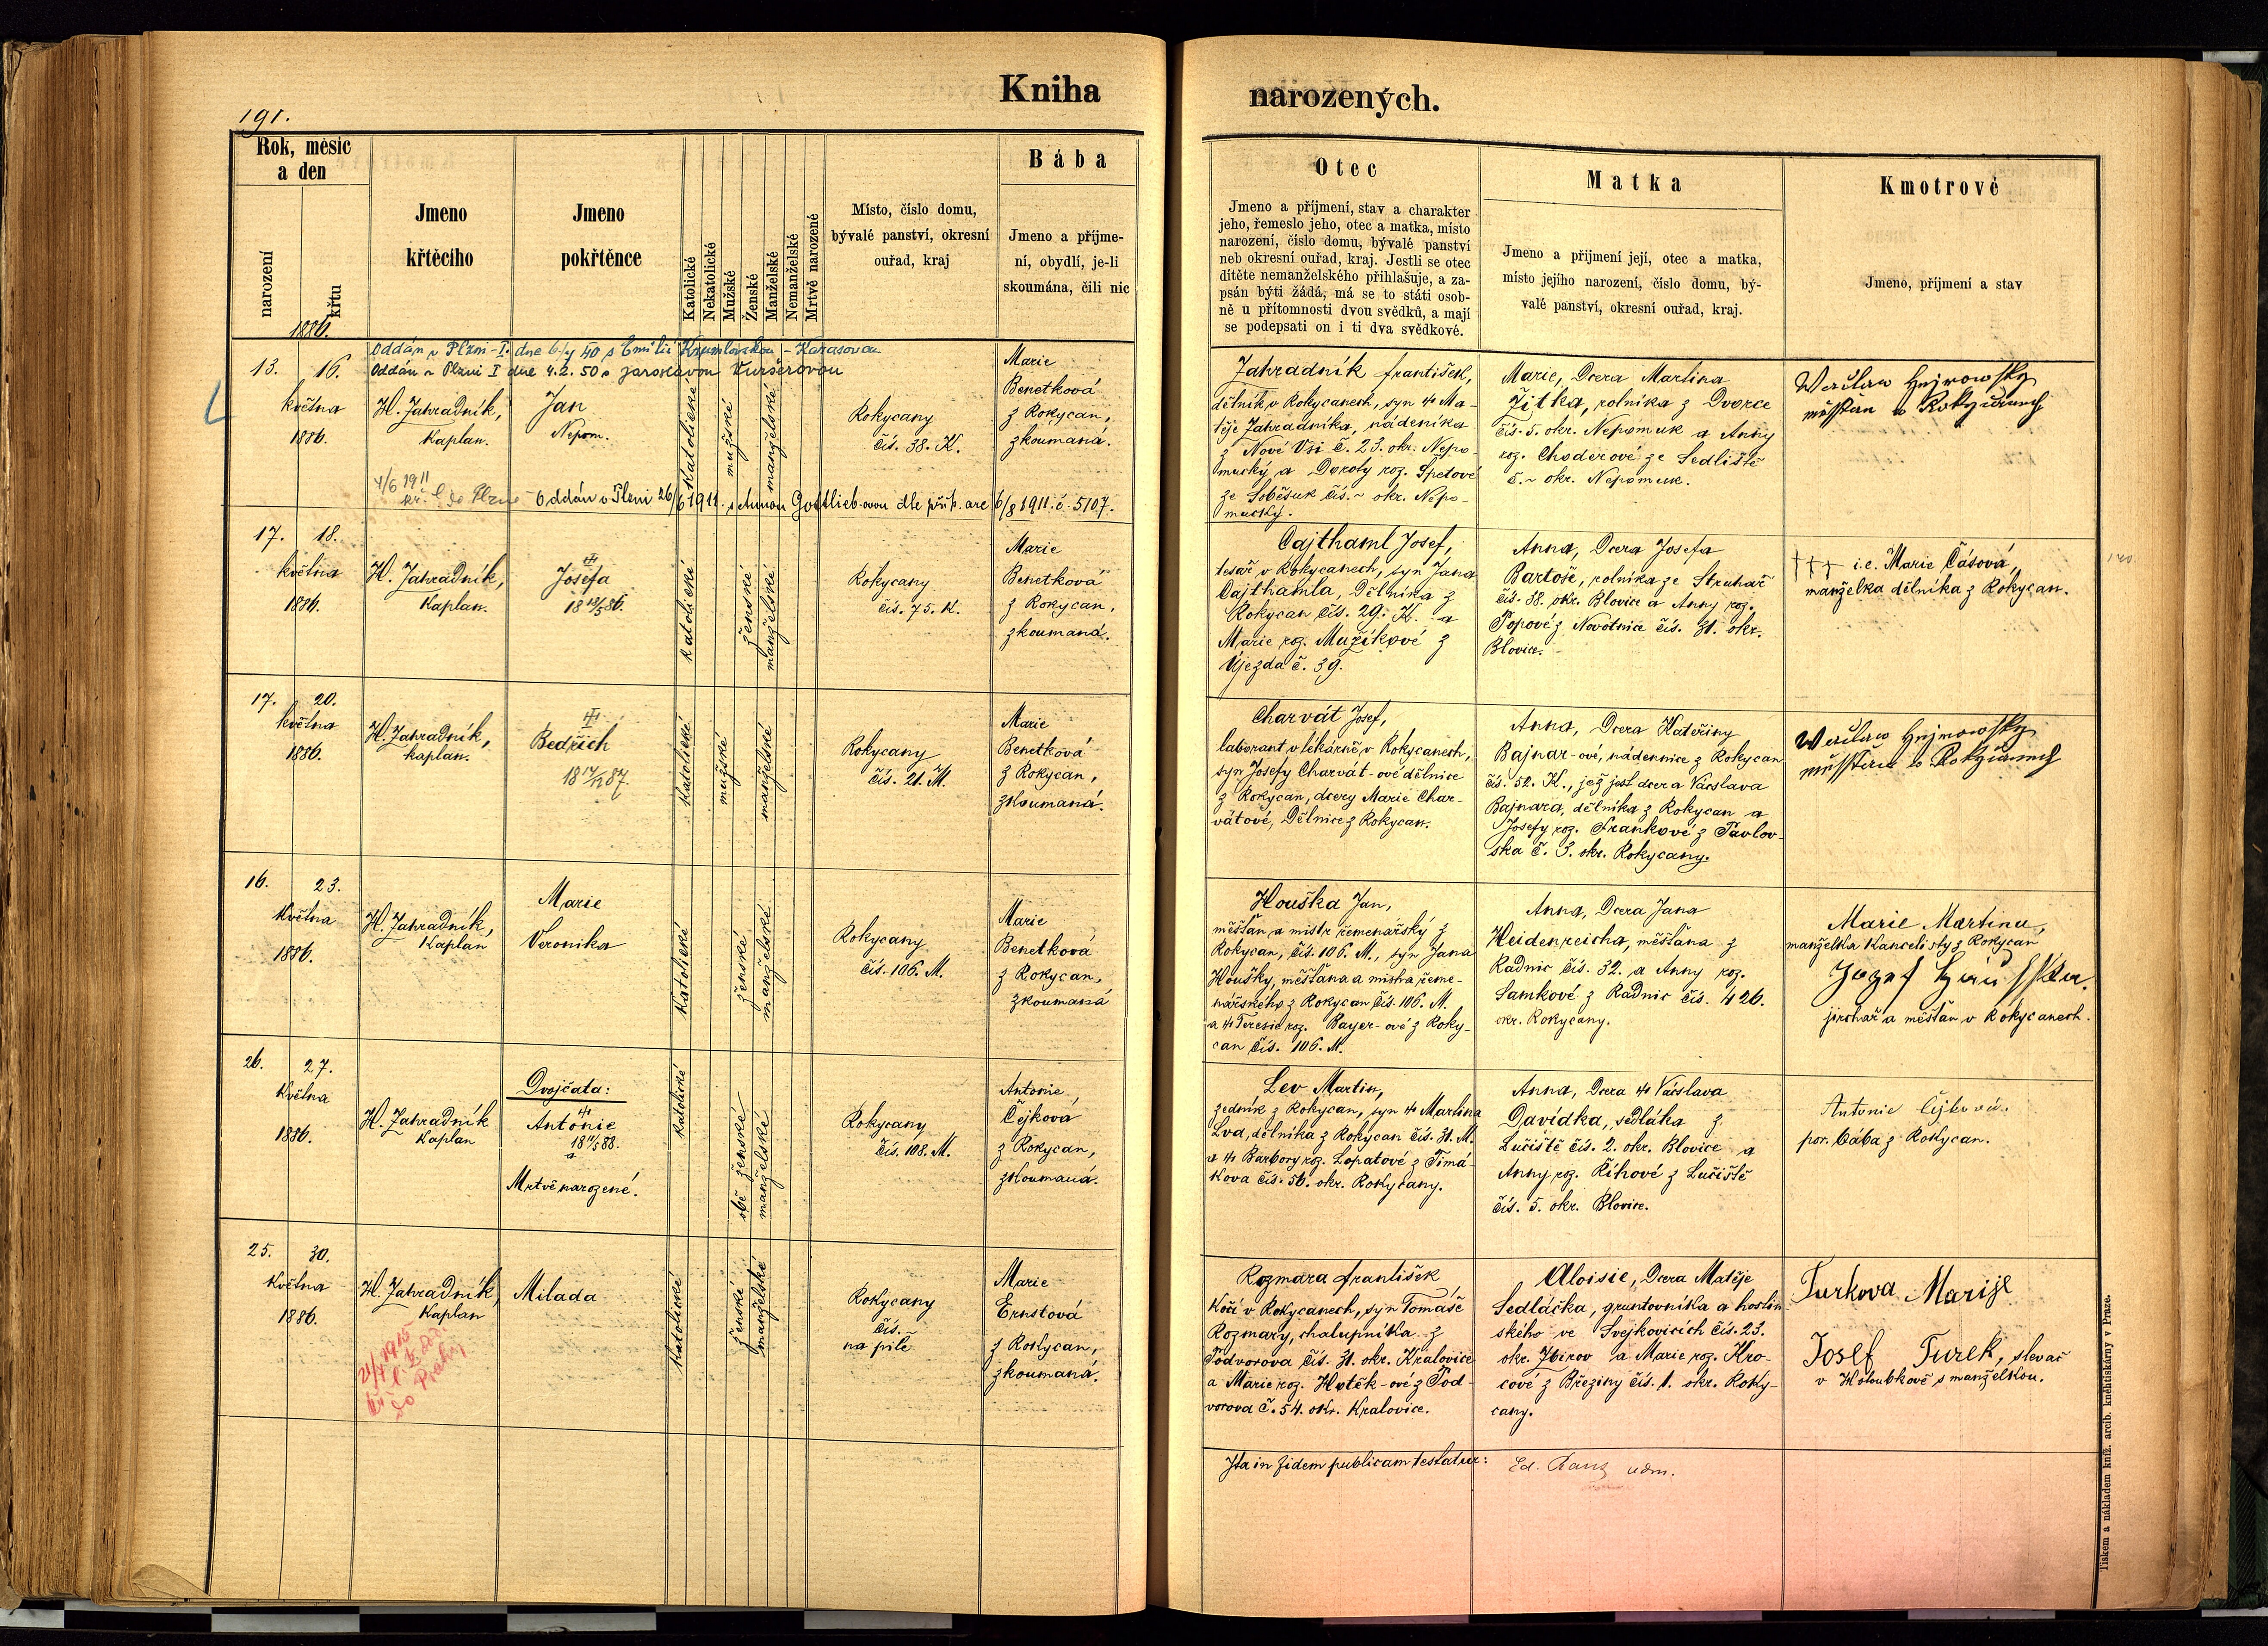 191.
Kniha narozených.
Rok, měsíc
a den
narození
křtu
Jmeno
křtěcího
Jmeno
pokřtěnce
Katolické
Nekatolické
Mužské
Ženské
Manželské
Nemanželské
Mrtvě narozené
Místo, číslo domu,
bývalé panství, okresní
ouřad, kraj
Bába
Jmeno a příjme-
ní, obydlí, je-li
skoumána, čili nic
Otec
Jmeno a příjmení, stav a charakter
jeho, řemeslo jeho, otec a matka, místo
narození, číslo domu, bývalé panství
neb okresní ouřad, kraj. Jestli se otec
dítěte nemanželského přihlašuje, a za-
psán býti žádá, má se to státi osob-
ně u přítomnosti dvou svědků, a mají
se podepsati on i ti dva svědkové.
Matka
Jmeno a přijmení její, otec a matka,
místo jejího narození, číslo domu, bý-
valé panství, okresní ouřad, kraj.
Kmotrové
Jmeno, příjmení a stav
1886.
Oddán v Plzni-I. dne 6/4 40 s Emilií Krumlovskou-Karasovou
Oddán v Plzni I dne 4.2.50 s Jaroslavou Vuršerovou
13. 16.
května
1886.
H. Zahradník,
Kaplan.
Jan
Nepom.
Katolické
mužské
manželské
Rokycany
čís. 38. K.
Marie
Benetková
z Rokycan,
zkoumaná.
4/6 1911
do Plzně
Oddán v Plzni 26/6 1911. s Annou Gottlieb-ovou dle příp. arc 6/8 1911. č. 5107.
Zahradník František,
dělník v Rokycanech, syn † Ma-
těje Zahradníka, nádeníka
z Nové Vsi č. 23. okr. Nepo-
mucký a Doroty roz. Špetové
ze Soběsuk čís. ~ okr. Nepo-
mucký.
Marie, Dcera Martina
Žitka, rolníka z Dvorce
čís. 5. okr. Nepomuk a Anny
roz. Choderové ze Sedliště
č. ~ okr. Nepomuk.
17. 18.
května
1886.
H. Zahradník,
Kaplan.
Josefa
18 12/5 86.
katolické
ženské
manželské
Rokycany
čís. 75. K.
Marie
Benetková
z Rokycan,
zkoumaná.
Cajthaml Josef,
tesař v Rokycanech, syn Jana
Cajthamla, Dělníka z
Rokycan čís. 29. K. a
Marie roz. Mužíkové z
Újezda č. 39.
Anna, Dcera Josefa
Bartoše, rolníka ze Struhař
čís. 38. okr. Blovice a Anny roz.
Popové z Novotnic čís. 31. okr.
Blovice.
††† i.e. Marie Čásová,
manželka dělníka z Rokycan.
17. 20.
května
1886.
H. Zahradník,
kaplan.
Bedřich
katolické
mužské
manželské
Rokycany
čís. 21. M.
Marie
Benetková
z Rokycan,
zkoumaná.
Charvát Josef,
laborant v lékárně v Rokycanech,
syn Josefy Charvát-ové dělnice
z Rokycan, dcery Marie Char-
vátové, Dělnice z Rokycan.
Anna, Dcera Kateřiny
Bajnar-ové, nádennice z Rokycan
čís. 52. K., jež jest dcera Václava
Bajnara, dělníka z Rokycan a
Josefy roz. Frankové z Pavlov-
ska č. 3. okr. Rokycany.
16. 23.
května
1886.
H. Zahradník,
Kaplan
Marie
Veronika
katolické
ženské
manželské
Rokycany
čís. 106. M.
Marie
Benetková
z Rokycan,
zkoumaná
Houška Jan,
měšťan a mistr řemenářský z
Rokycan, čís. 106. M., syn Jana
Houšky, měšťana a mistra řeme-
nářského z Rokycan čís. 106. M.
a † Teresie roz. Payer-ové z Roky-
can čís. 106. M.
Anna, Dcera Jana
Heidenreicha, měšťana z
Radnic čís. 32. a Anny roz.
Samkové z Radnic čís. 426.
okr. Rokycany.
Marie Martinu,
manželka kancelisty z Rokycan
jirchář a měšťan v Rokycanech.
26. 27.
května
1886.
H. Zahradník
Kaplan
Dvojčata:
Antonie
a
Mrtvě narozené.
katolické
obě ženské
manželské
Rokycany
čís. 108. M.
Antonie
Čejková
z Rokycan,
zkoumaná.
Lev Martin,
zedník z Rokycan, syn † Martina
Lva, dělníka z Rokycan čís. 31. M.
a † Barbory roz. Lopatové z Timá-
kova čís. 56. okr. Rokycany.
Anna, Dcera † Václava
Davídka, sedláka z
Lučiště čís. 2. okr. Blovice a
Anny roz. Říhové z Lučiště
čís. 5. okr. Blovice.
Antonie Čejková.
por. bába z Rokycan.
25. 30.
května
1886.
H. Zahradník,
Kaplan
Milada
katolické
ženské
manželské
Rokycany
čís. ~
na pile
Marie
Ernstová
z Rokycan,
zkoumaná.
do Prahy
Rozmara František,
kočí v Rokycanech, syn Tomáše
Rozmary, chalupníka z
Podvorova čís. 31. okr. Kralovice
a Marie roz. Hoték-ové z Pod-
vorova č. 54. okr. Kralovice.
Aloisie, Dcera Matěje
Sedláčka, gruntovníka a hostin-
ského ve Svejkovicích čís. 23.
okr. Zbirov a Marie roz. Kro-
cové z Březiny čís. 1. okr. Roky-
cany.
Turkova Marije
Josef Turek, slevač
v Holoubkově s manželkou.
Ita in fidem publicam testatur:
Tiskem a nákladem kníž. arcib. knihtiskárny v Praze.